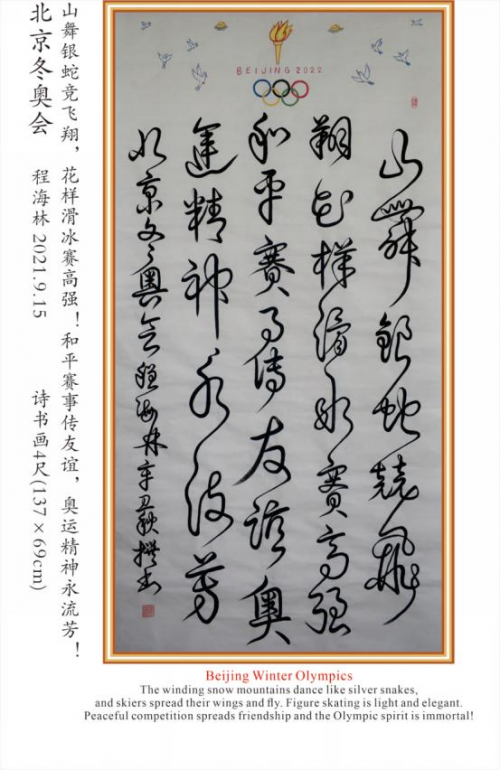 BEIJING 2022
山舞銀蛇競飛
翔花樣滑冰賽高强
和平賽事传友谊奥
運精神永流芳
北京冬奥会程海林辛丑秋撰书
山舞银蛇竞飞翔，花样滑冰赛高强！和平赛事传友谊，奥运精神永流芳！
北京冬奥会 程海林 2021.9.15 诗书画4尺(137×69cm)
Beijing Winter Olympics
The winding snow mountains dance like silver snakes,
and skiers spread their wings and fly. Figure skating is light and elegant.
Peaceful competition spreads friendship and the Olympic spirit is immortal!